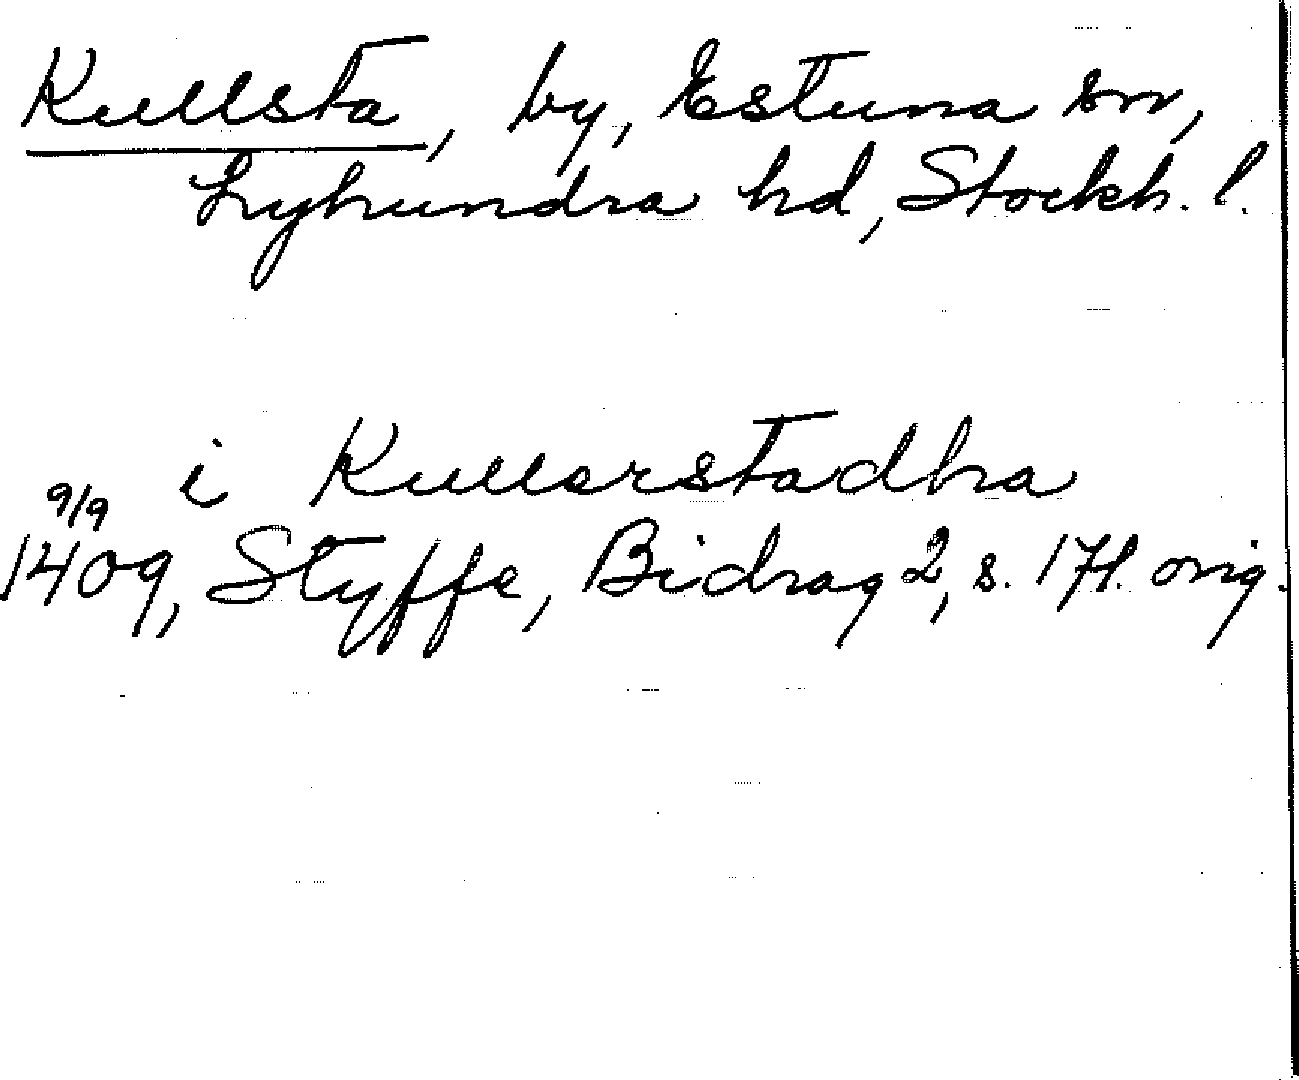 Kullsta, by, Estuna sn,
Lyhundra hd, Stockh. l.
i Kullerstadha
9/9
1409, Styffe, Bidrag 2, s. 171. orig.